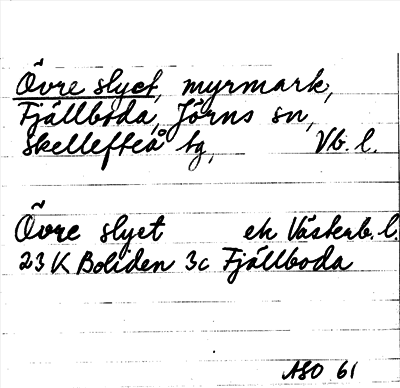 Övre slyet, myrmark,
Fjällboda, Jörns sn,
Skellefteå tg, Vb. l.
Övre slyet ek Västerb. l.
23 K Boliden 3c Fjällboda
ASO 61